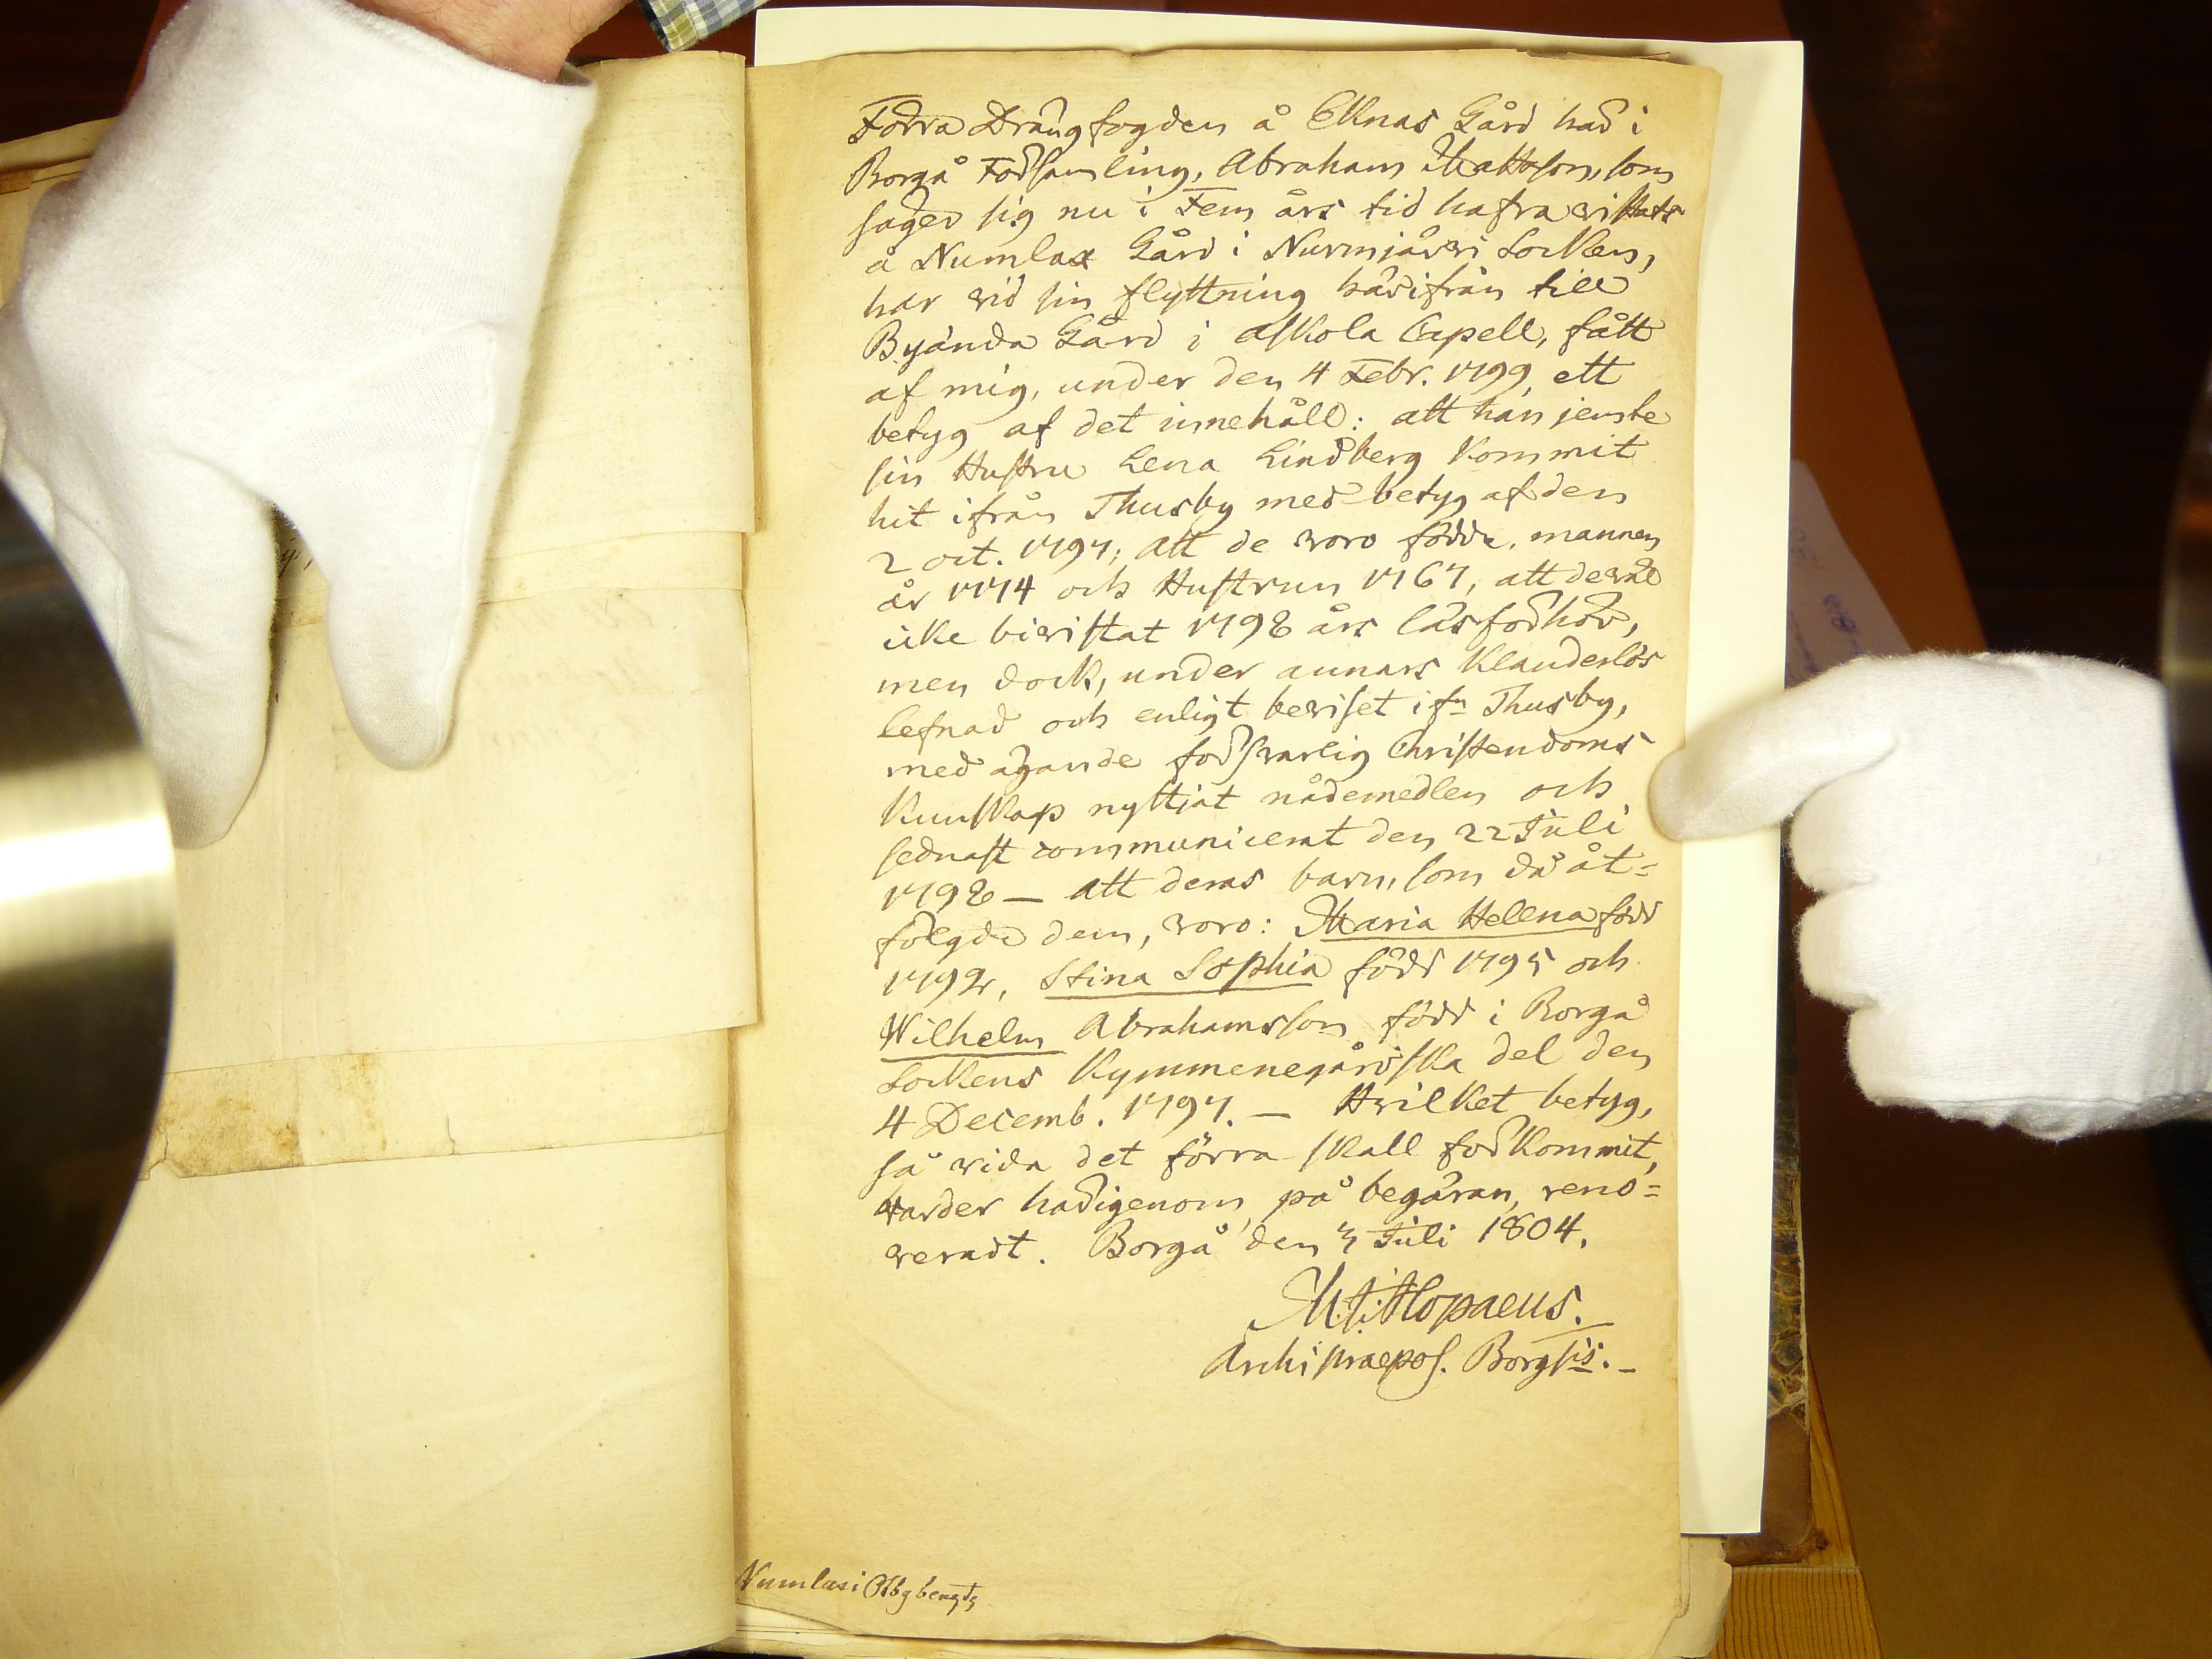 Förra Drängfogden å Eknäs Gård här i
Borgå Församling, Abraham Mattsson, som
säger sig nu i Fem års tid hafva vistats
å Numlax Gård i Nurmijärvi Socken,
har vid sin flyttning härifrån till
Byända Gård i Askola Capell, fått
af mig, under den 4 Febr. 1799, ett
betyg af det innehåll: att han jemte
sin Hustru Lena Lindberg kommit
hit ifrån Thusby med betyg af den
2 oct. 1797; att de voro födde, mannen
år 1774 och Hustrun 1767, att de väl
icke bivistat 1798 års läsförhör,
men dock, under annars klanderlös
lefnad och enligt beviset ifn Thusby,
med ägande försvarlig Christendoms
kunskap nyttjat nådemedlen och
sednast communicerat den 22 Juli
1798 — att deras barn, som då åt=
följde dem, voro: Maria Helena född
1792, Stina Sophia född 1795 och
Wilhelm Abrahamsson född i Borgå
Sockens Kymmenegårdska del den
4 Decemb. 1797. — Hvilket betyg,
så vida det förra skall förkommit,
varder härigenom, på begäran, reno=
veradt. Borgå den 3 Juli 1804.
M. J. Alopaeus.
Archipraepos. Borgsis. —
Numlaxi